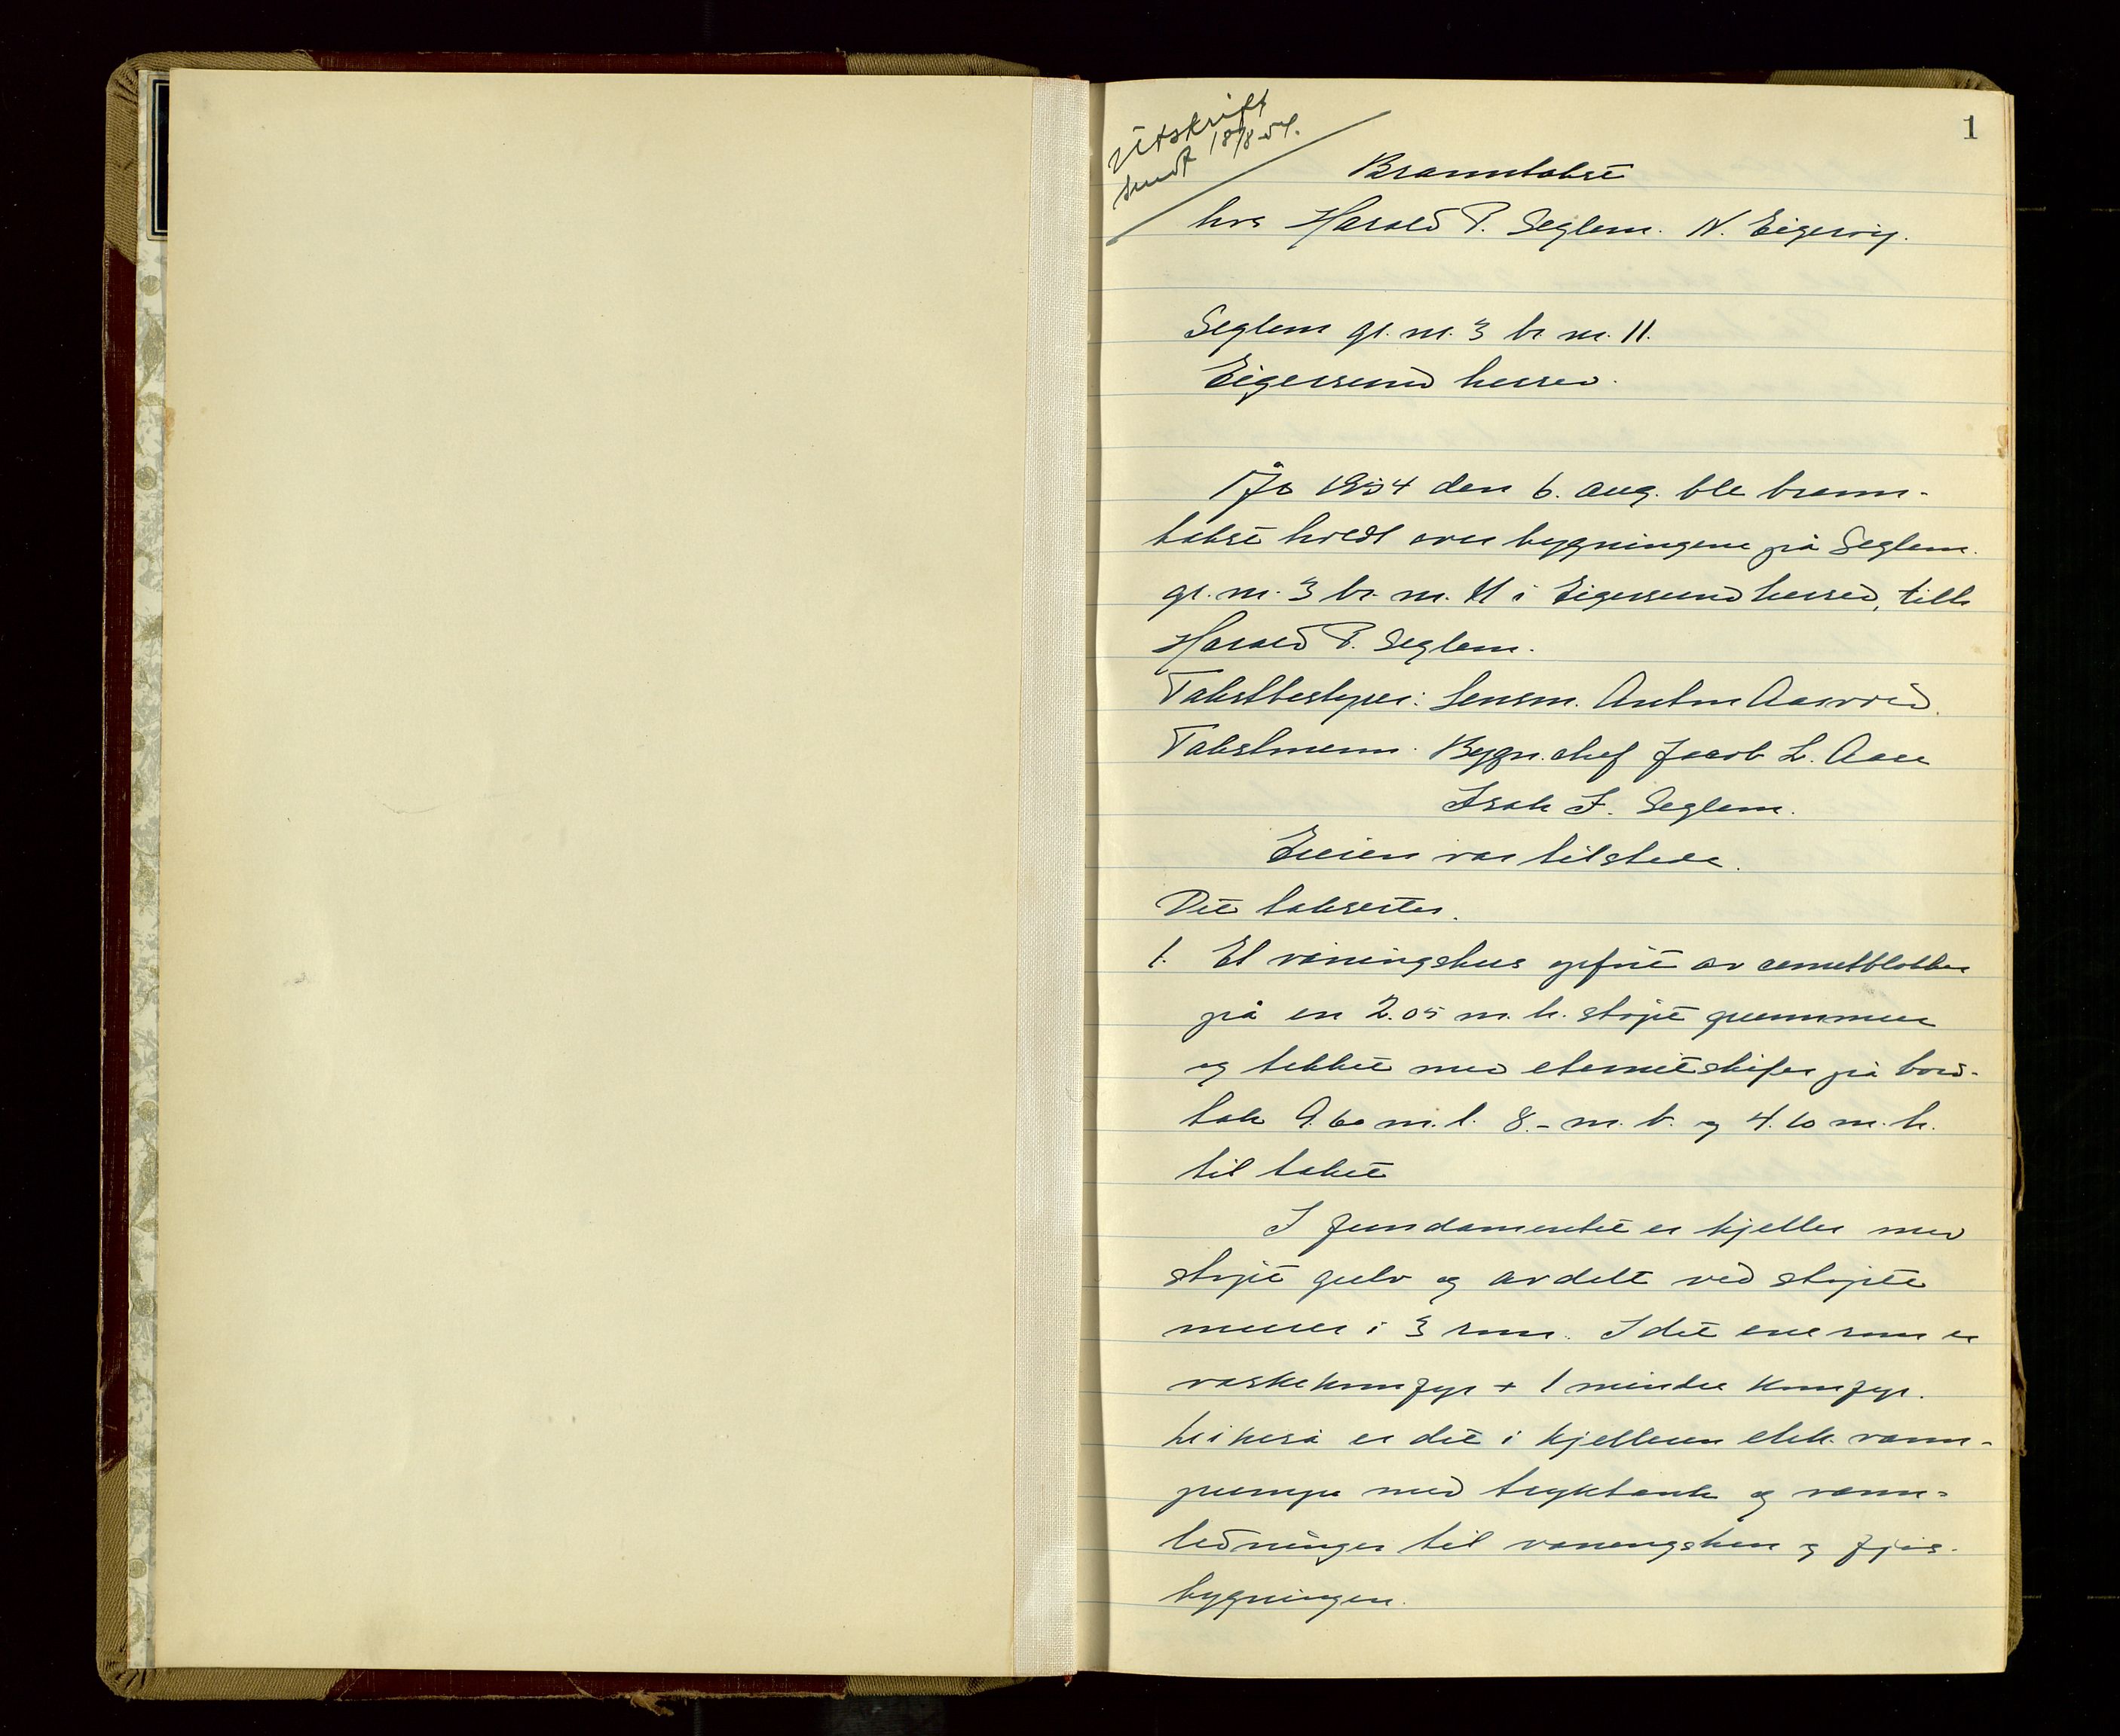 1
Utskrift
sendt 18/8-54.
Branntakst
hos Harald P. Seglem. N. Eigerøy.
Seglem gr. nr. 3 br nr. 11.
Eigersund herred.
År 1954 den 6. aug. ble brann-
takst holdt over bygningene på Seglem.
gr. nr. 3 br. nr. 11 i Eigersund herred, tilh
Harald P. Seglem.
Takstbestyrer: Lensm. Anton Aasvold.
Takstmenn. Bygn.chef Jacob L. Aase
Isak I. Seglem.
Eieren var tilstede.
Det takseres.
1. Et våningshus opført av cemetblokker
på en 2.05 m. h. støpt grunnmur
og tekket med eternitskifer på bord-
tak 9.60 m. l. 8.- m. b. og 4.10 m. h.
til taket
I fundamentet er kjeller med
støpt gulv og avdelt ved støpte
murer i 3 rom. I det ene rom er
vaskekomfyr + 1 mindre komfyr.
Likeså er det i kjelleren elek. vann-
pumpe med tryktank og vann-
ledninger til våningshus og fjøs-
bygningen.